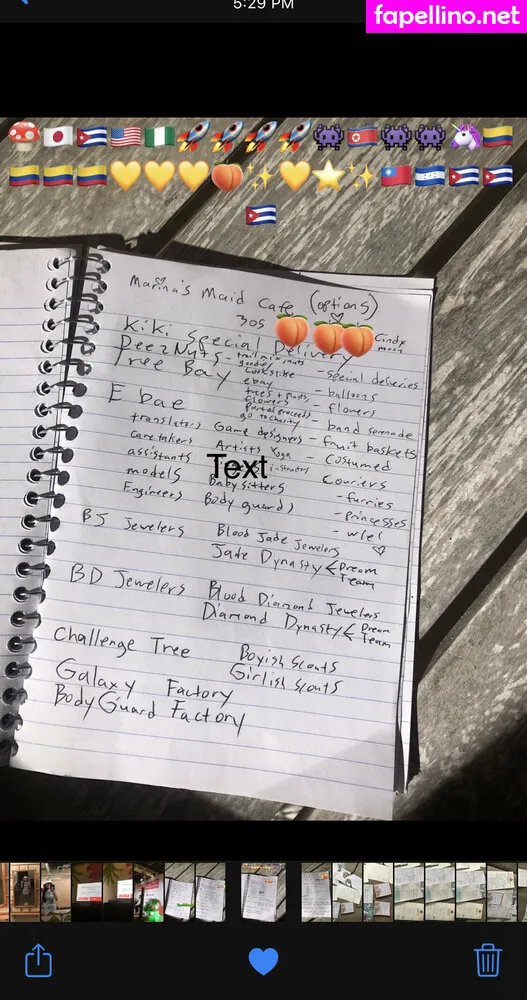 5:29 PM
fapellino.net
Marina's Maid Cafe (options)
305
Kiki Special Delivery
Cindy moon
DeezNuts - trail mix + nuts
goodies
- special deliveries
Tree Bay
ebay
trees + plants
flowers
partial proceeds
go to charity
- balloons
- flowers
E bae
- band serenade
translators Game designers - fruit baskets
caretakers Artists Yoga instructors - Costumed
assistants Text Couriers
models Babysitters - furries
Engineers Body guards - princesses
- wle!
BJ Jewelers Blood Jade Jewelers
Jade Dynasty < Dream Team
BD Jewelers Blood Diamond Jewelers
Diamond Dynasty < Dream Team
Challenge Tree Boyish Scouts
Girlish Scouts
Galaxy Factory
BodyGuard Factory